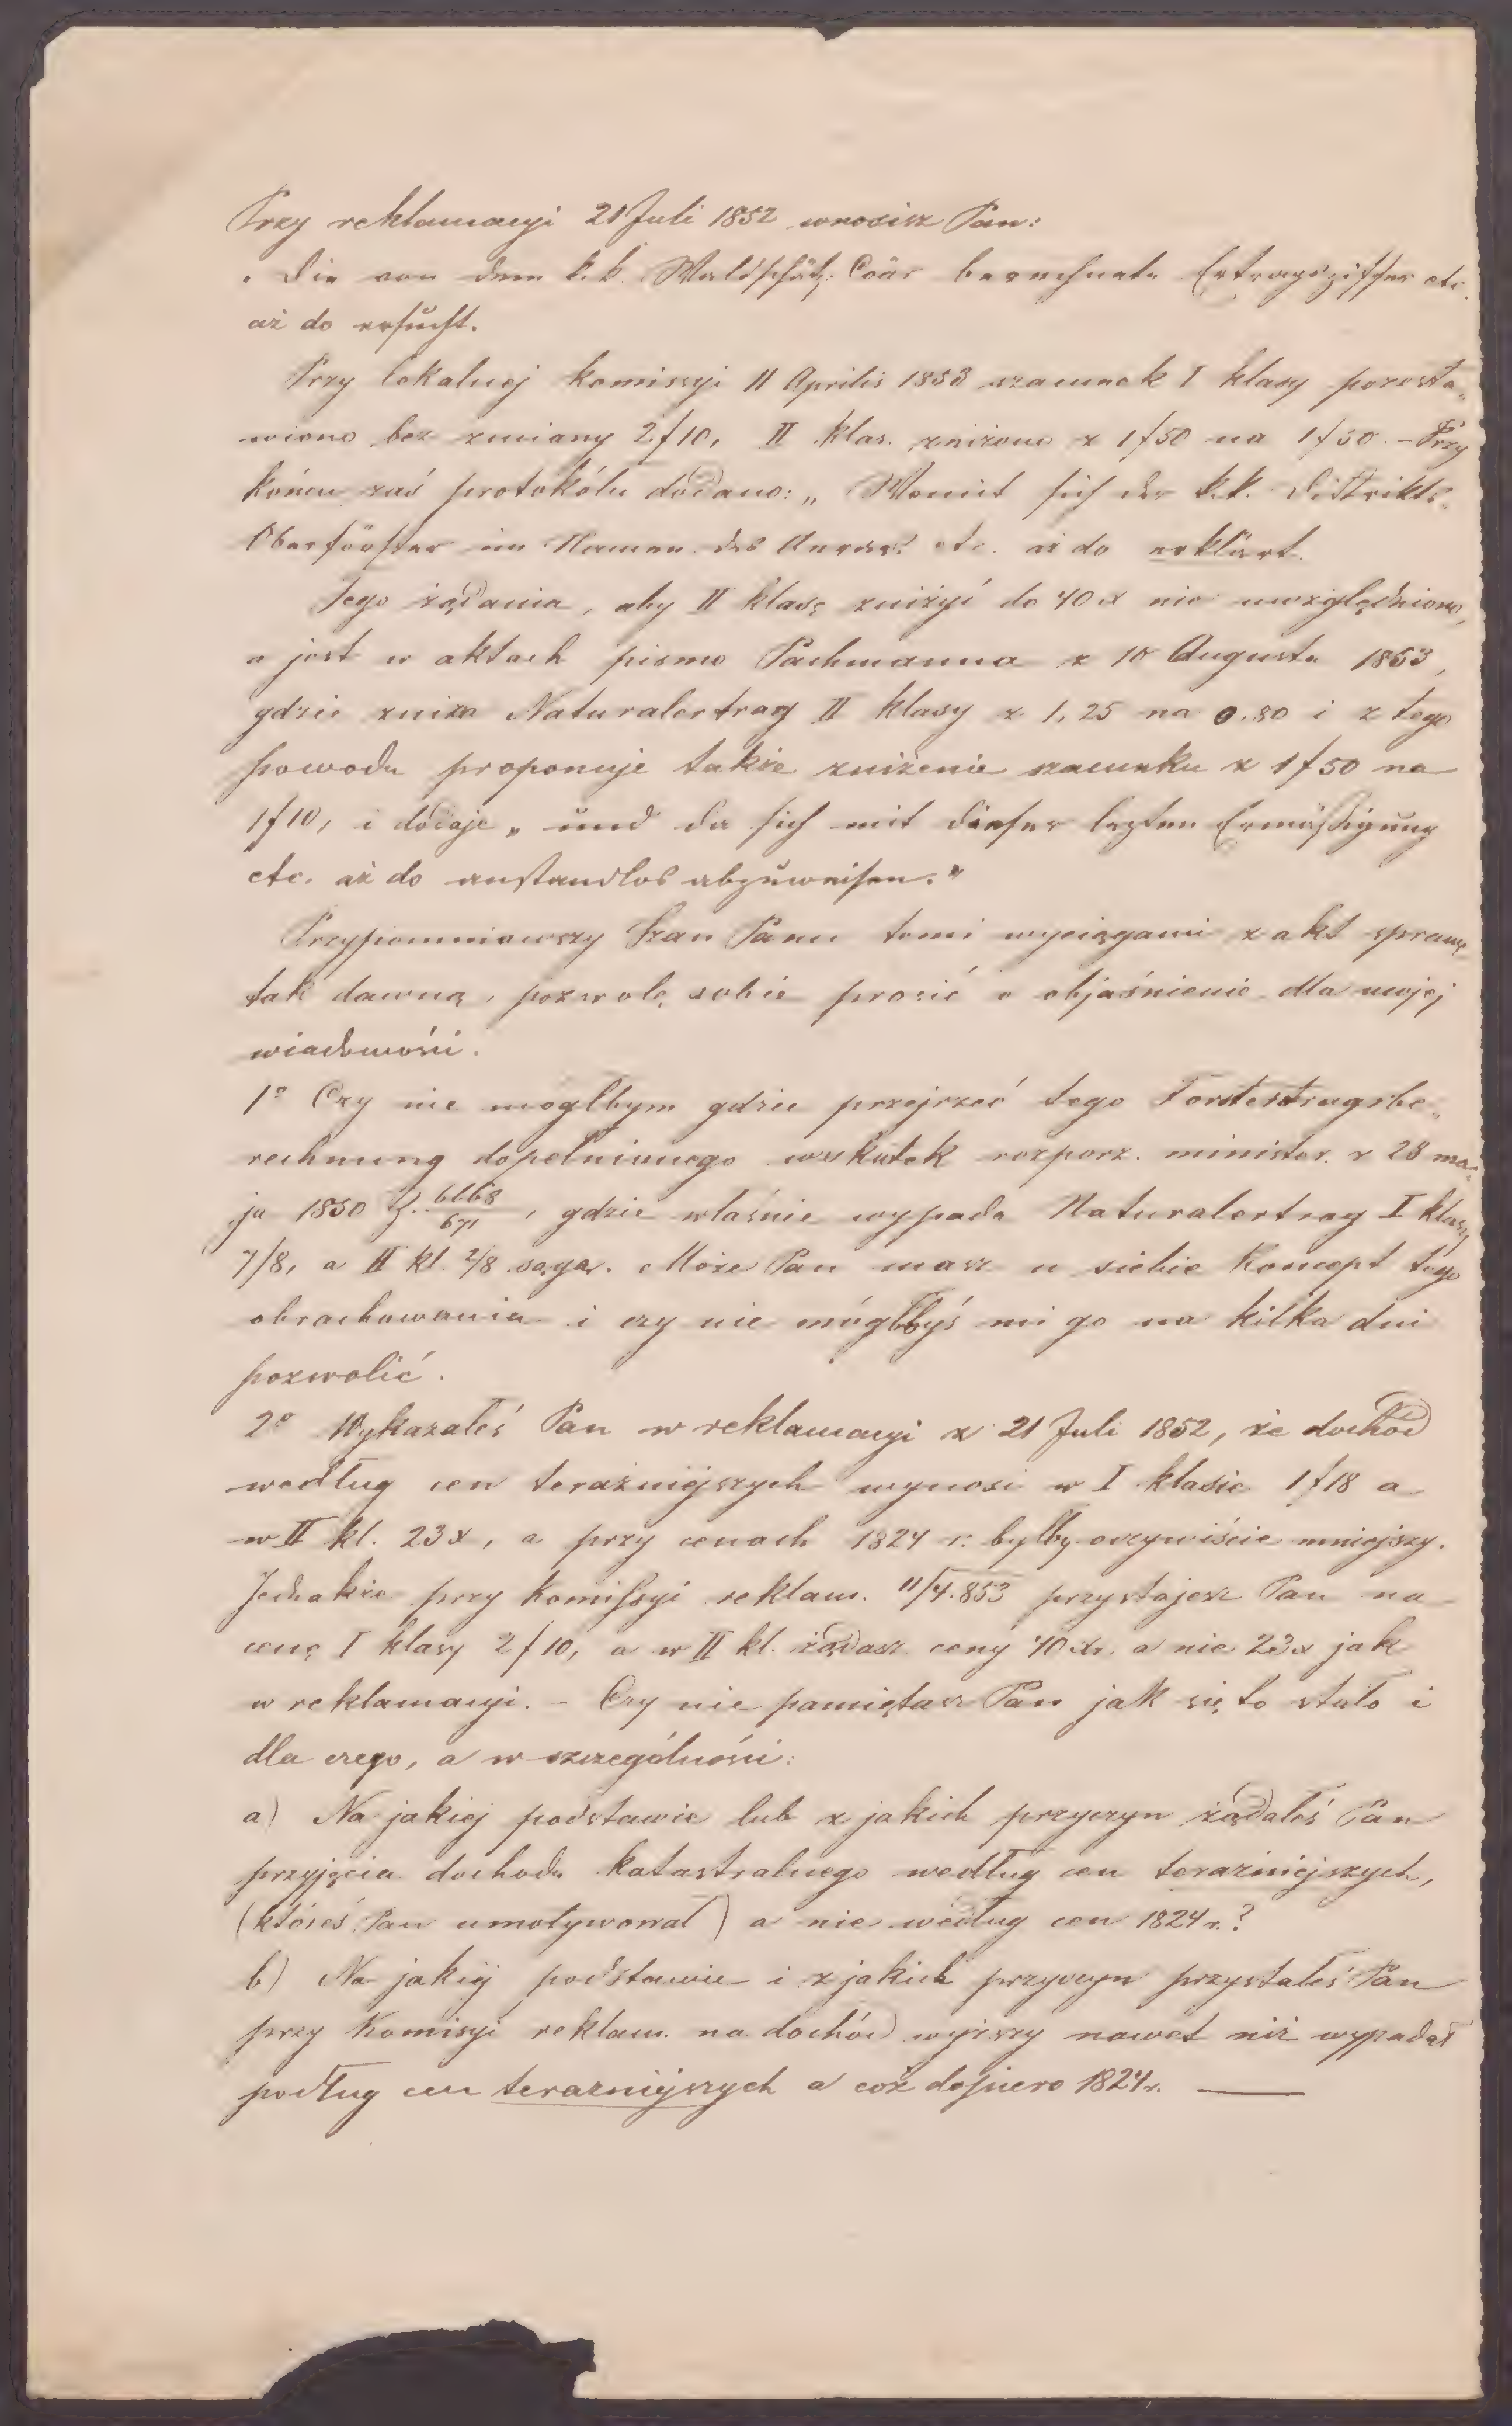 Przy reklamacyi 21 Juli 1852 wnosisz Pan:
„Die von dem k.k. Waldschätz: Coär berechnete Ertragsziffer etc.
aż do ersucht.
Przy lokalnej komissyi 11 Aprilis 1853 szacunek I klasy pozosta„
wiono bez zmiany 2f10, II klas. zniżono z 1f50 na 1f30. – Przy
końcu zaś protokólu dodano: „Womit sich der k.k. Distrikts„
Oberförster im Namen des Aerars etc. aż do erklärt.
Tego żądania, aby II klasę zniżyć do 40x nie uwzględniono,
a jest w aktach pismo Pachmanna z 10 Augusta 1853,
gdzie zniża Naturalertrag II klasy z 1,25 na 0.80 i z tego
powodu proponuje także zniżenie szacunku z 1f50 na
1f10, i dodaje „und da sich mit dieser lezten Ermäßigung
etc. aż do anstandlos abzuweisen."
Przypomniawszy Szan Panu temi wyciągami z akt sprawę
tak dawną, pozwolę sobie prosić o objaśnienie dla mojej
wiadomości.
1º Czy nie mogłbym gdzie przejrzeć tego Forstertragsbe„
rechnung dopełnionego wskutek rozporz. minister. z 28 ma„
ja 1850 Z. 6668/671, gdzie właśnie wypada Naturalertrag I klasy
7/8, a II kl. 2/8 sągar. Może Pan masz u siebie Koncept tego
obrachowania i czy nie mógłbyś mi go na kilka dni
pozwolić.
2º Wykazałeś Pan w reklamacyi z 21 Juli 1852, że dochód
według cen teraźniejszych wynosi w I klasie 1f18 a
w II kl. 23x, a przy cenach 1824 r. byłby oczywiście mniejszy.
Jednakże przy Komissyi reklam. 11/4.853 przystajesz Pan na
cenę I klasy 2f10, a w II kl. żądasz ceny 40xr. a nie 23x jak
w reklamacyi. – Czy nie pamiętasz Pan jak się to stało i
dla czego, a w szczególności:
a) Na jakiej podstawie lub z jakich przyczyn żądałeś Pan
przyjęcia dochodu katastralnego według cen teraźniejszych,
(któreś Pan umotywował) a nie według cen 1824 r.?
b) Na jakiej podstawie i z jakich przyczyn przystałeś Pan
przy Komisyi reklam. na dochód wyższy nawet niż wypadał
podług cen teraźniejszych a cóż dopiero 1824 r. —